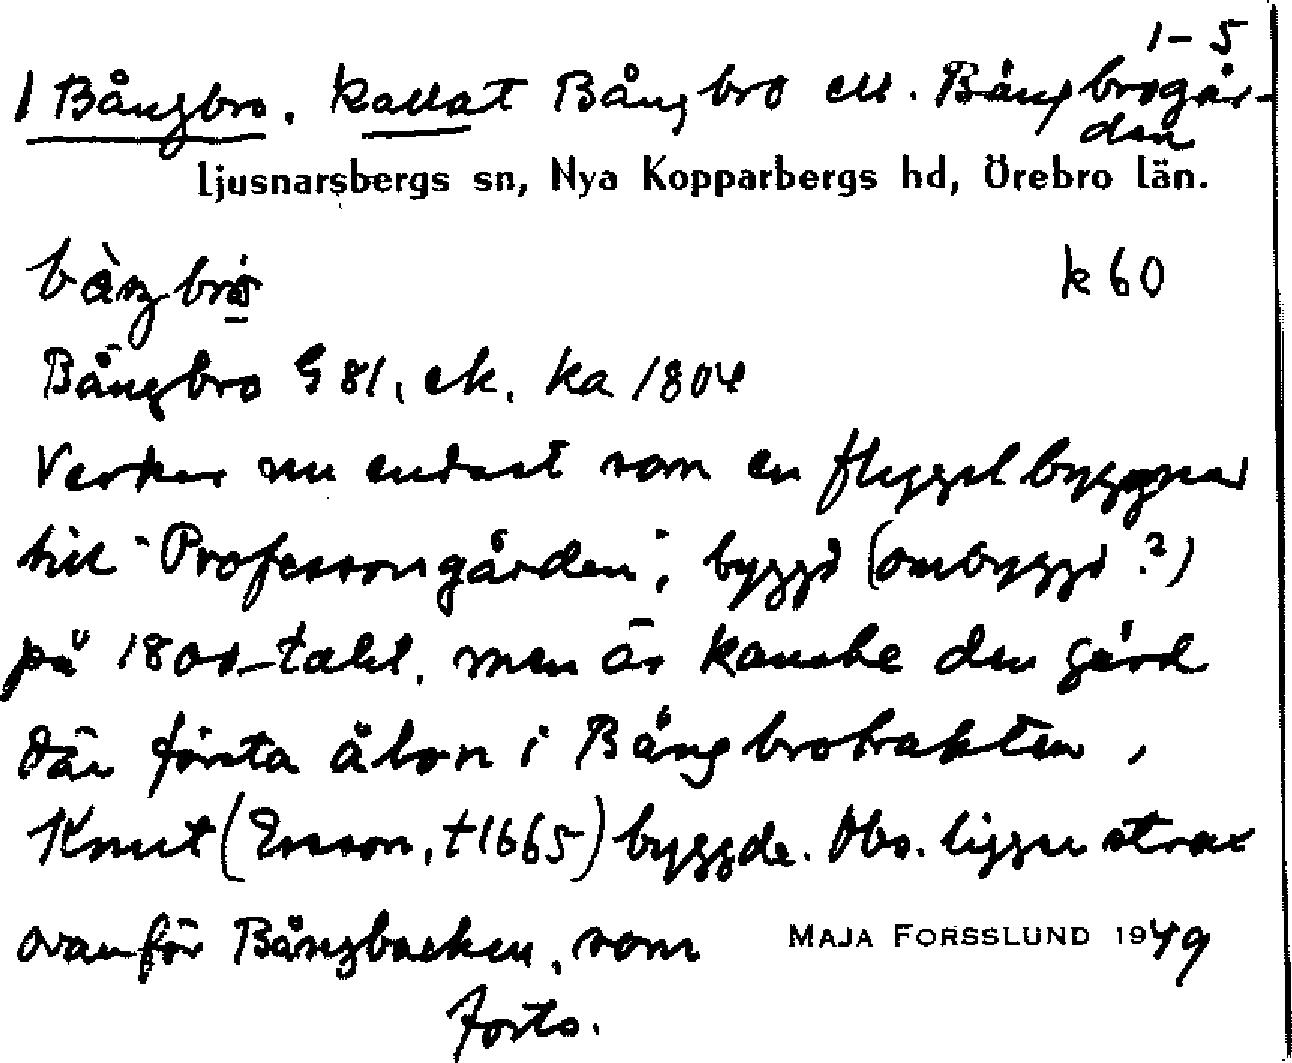 1-5
1 Bångbro. kallat Bångbro ell. Bångbrogår-
den
Ljusnarsbergs sn, Nya Kopparbergs hd, Örebro län.
bàŋbrò k 60
Bångbro G 81, ek. ka 1804
Verkar nu endast som en flygelbyggnad
till "Professorsgården", byggd (ombyggd?)
på 1800-talet, men är kanske den gård
där första åbon i Bångbrotrakten,
Knut (Ersson, †1665) byggde. Obs. ligger strax
ovanför Bångbacken, som MAJA FORSSLUND 1949
forts.